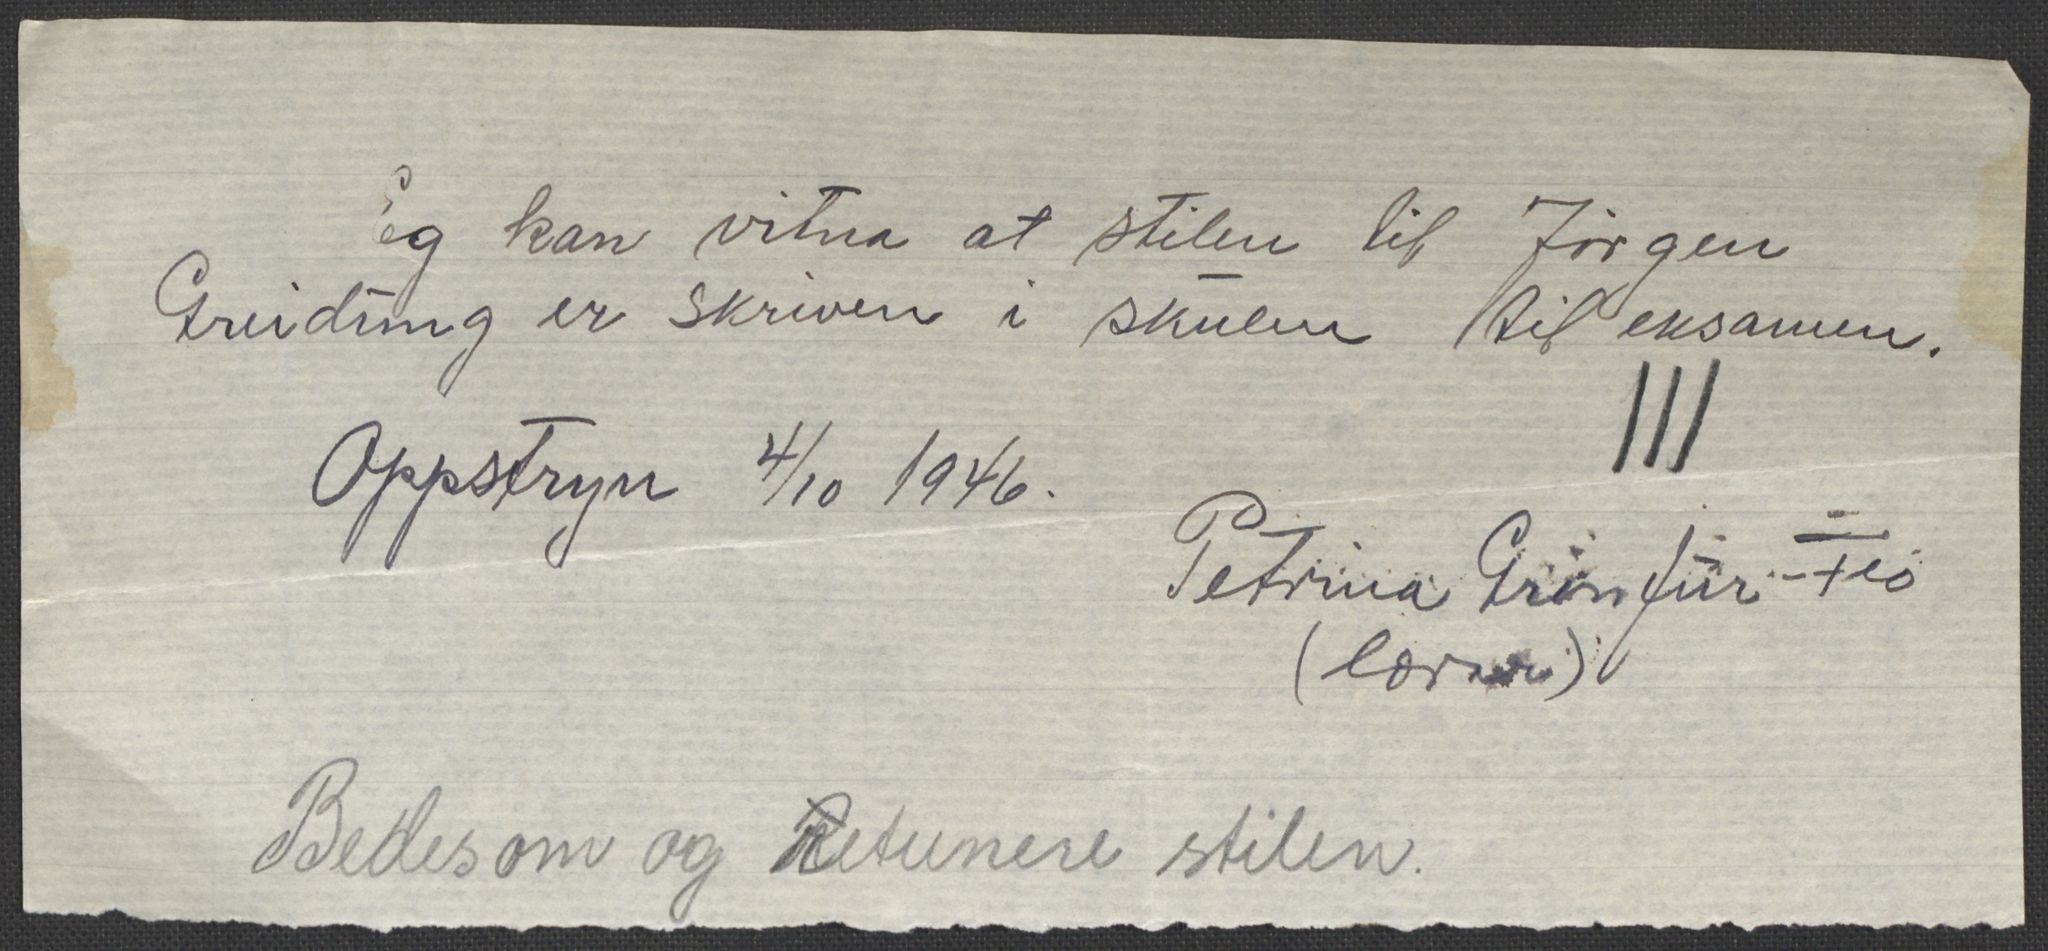 Eg kan vitna at stilen til Jörgen
Greidung er skriven i skulen til eksamen.
III
Oppstryn 4/10 1946.
Petrina Grönfur - Flo
(lærar)
Bedes om og Retunere stilen.